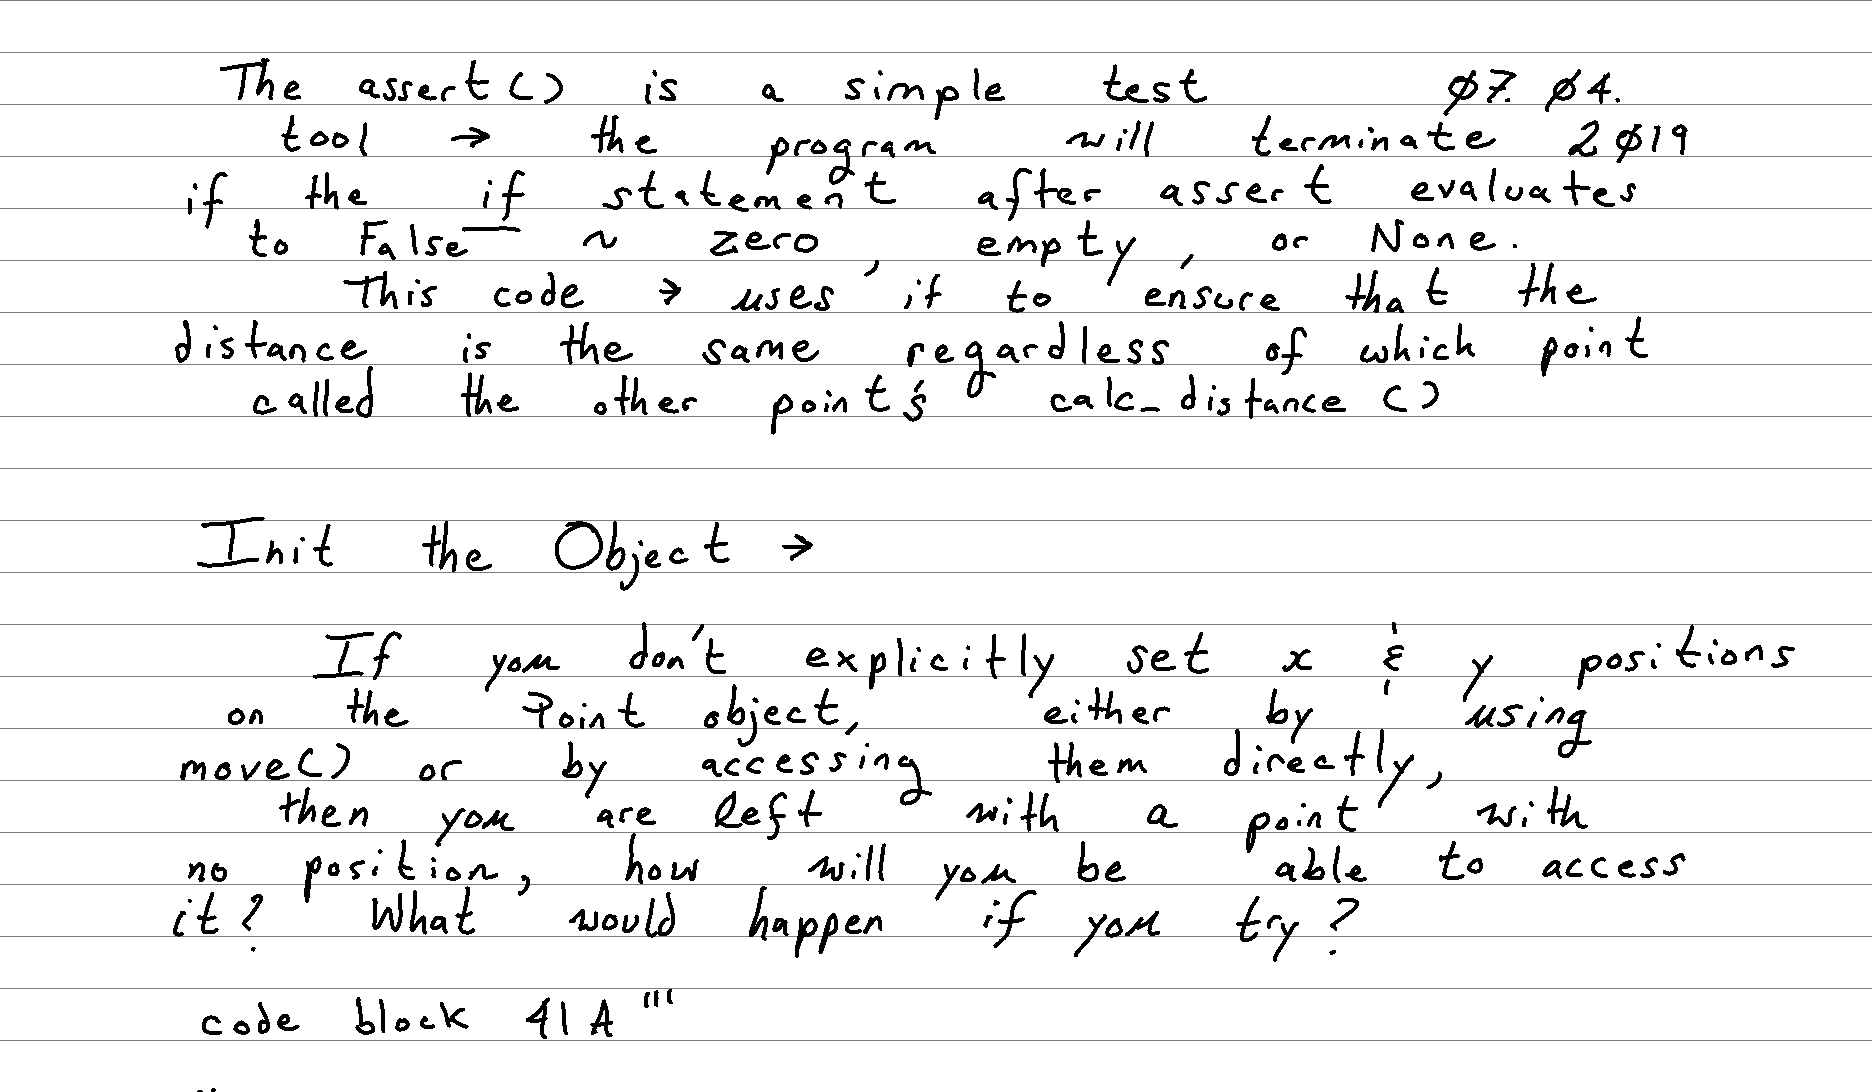 The assert() is a simple test Ø7. Ø4.
tool → the program will terminate 2Ø19
if the if statement after assert evaluates
to False ~ zero, empty, or None.
This code → uses it to ensure that the
distance is the same regardless of which point
called the other point's calc_distance()
Init the Object →
If you don't explicitly set x & y positions
on the Point object, either by using
move() or by accessing them directly,
then you are left with a point with
no position, how will you be able to access
it? What would happen if you try?
code block 41A '''